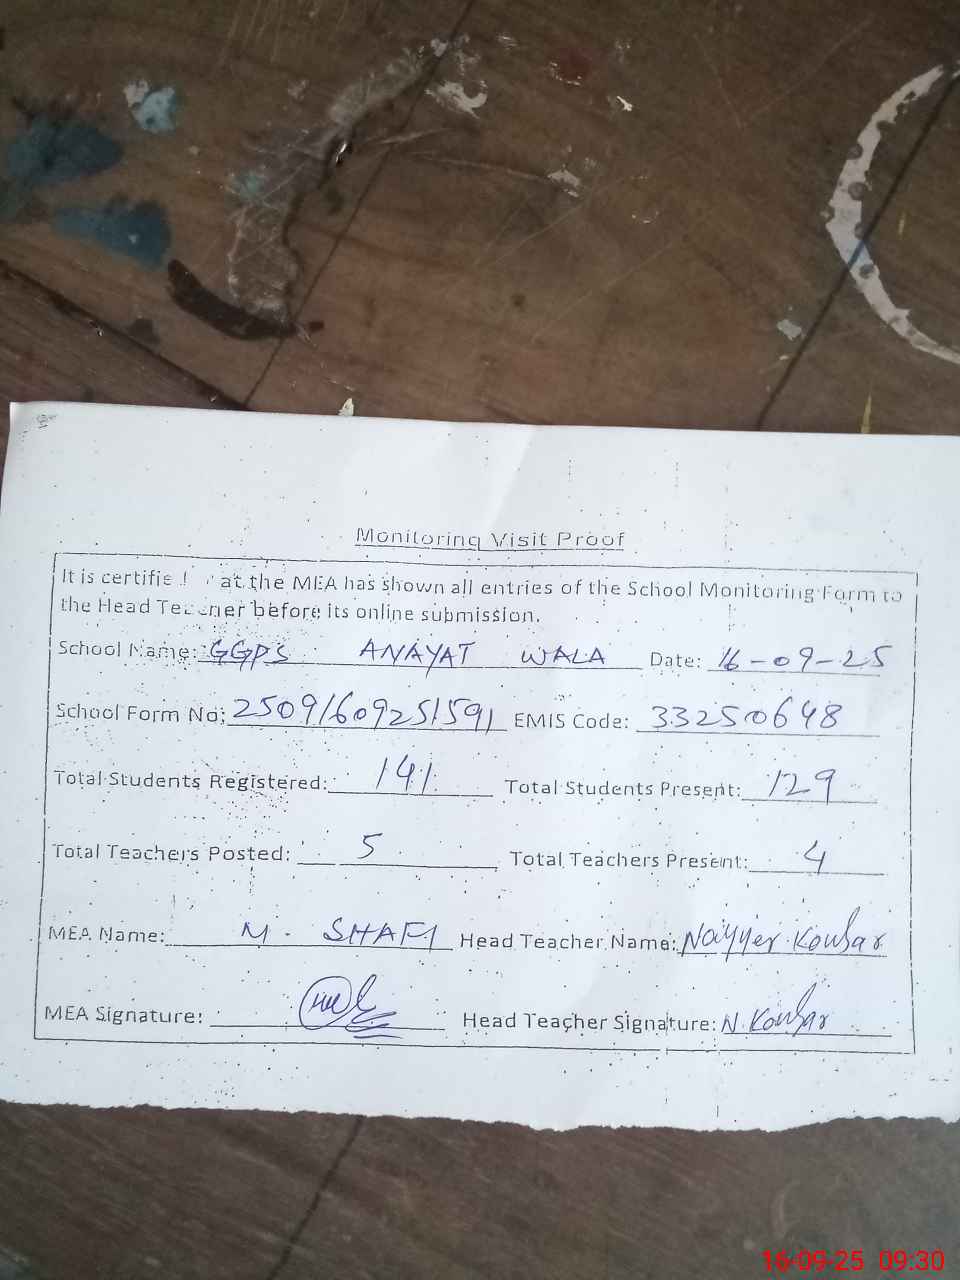 Monitoring Visit Proof
It is certifie at the MEA has shown all entries of the School Monitoring Form to
the Head Teacher before its online submission.
School Name: GGPS ANAYAT WALA Date: 16-09-25
School Form No: 25091609251591 EMIS Code: 33250648
Total Students Registered: 141 Total Students Present: 129
Total Teachers Posted: 5 Total Teachers Present: 4
MEA Name: M. SHAFI Head Teacher Name: Nayyer Kousar
MEA Signature: Head Teacher Signature: N. Kousar
16-09-25 09:30